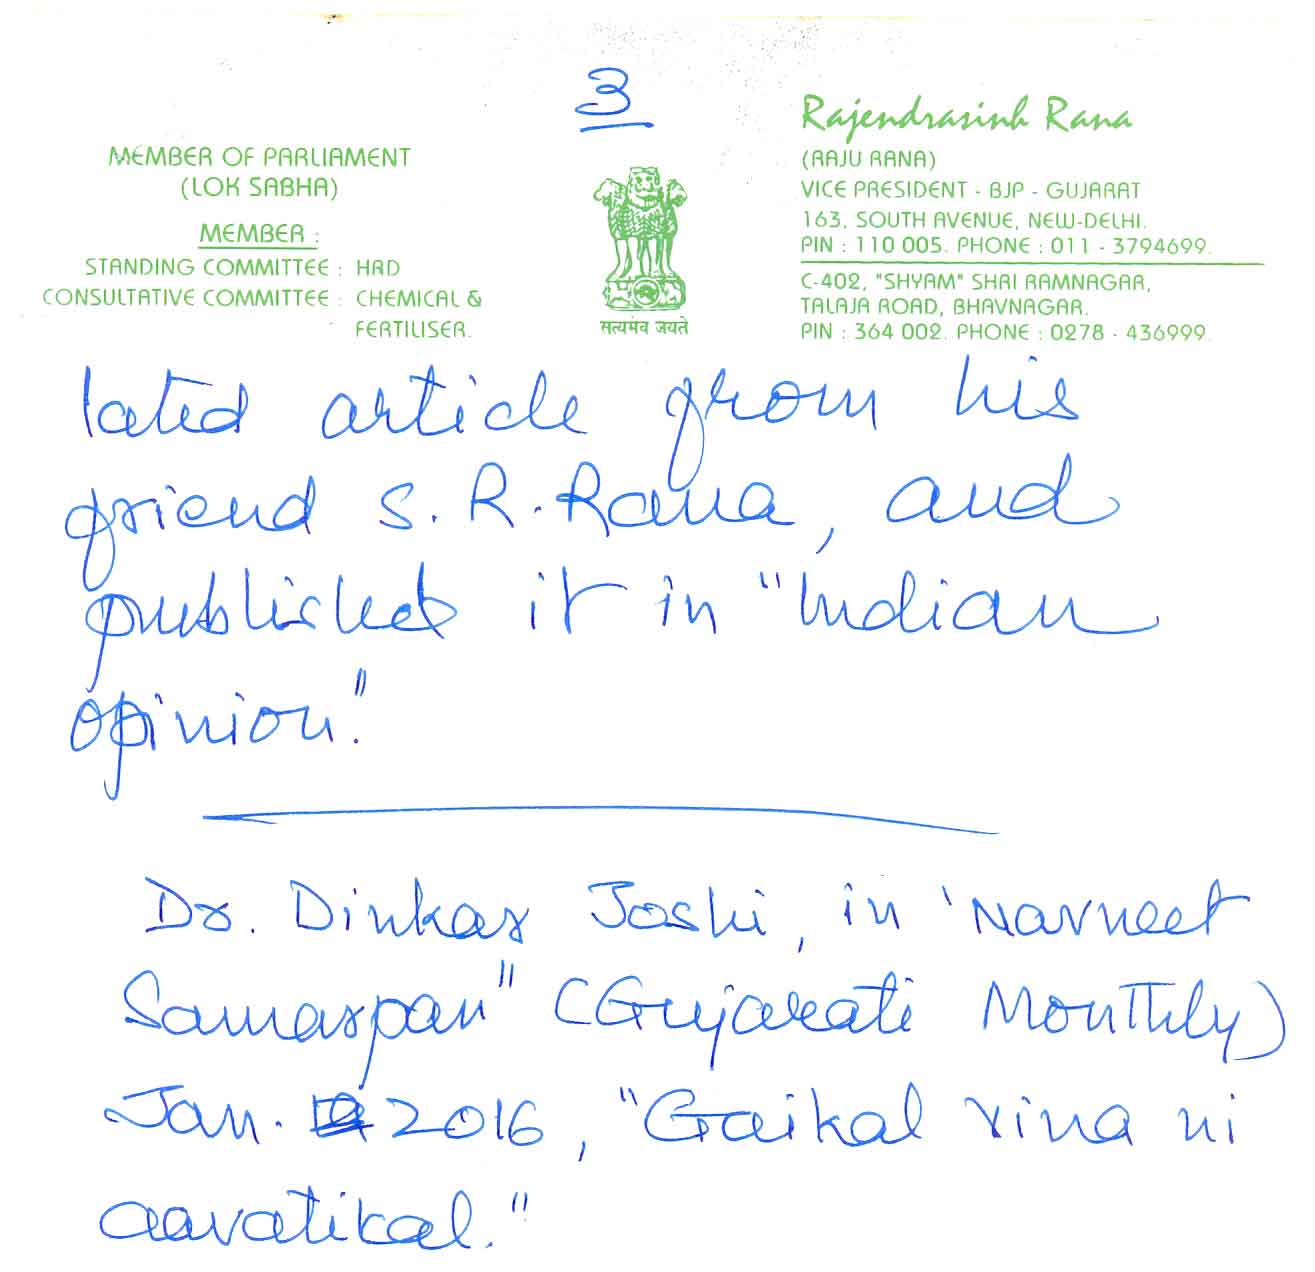 3
MEMBER OF PARLIAMENT
(LOK SABHA)
MEMBER :
STANDING COMMITTEE : HRD
CONSULTATIVE COMMITTEE : CHEMICAL &
FERTILISER.
सत्यमेव जयते
Rajendrasinh Rana
(RAJU RANA)
VICE PRESIDENT - BJP - GUJARAT
163, SOUTH AVENUE, NEW-DELHI.
PIN : 110 005. PHONE : 011 - 3794699.
C-402, "SHYAM" SHRI RAMNAGAR,
TALAJA ROAD, BHAVNAGAR.
PIN : 364 002. PHONE : 0278 - 436999.
lated article from his
friend S. R. Rana, and
published it in "Indian
opinion."
Dr. Dinkar Joshi, in 'Navneet
Samarpan" (Gujarati Monthly)
Jan. 2016, "Gaikal vina ni
aavatikal."